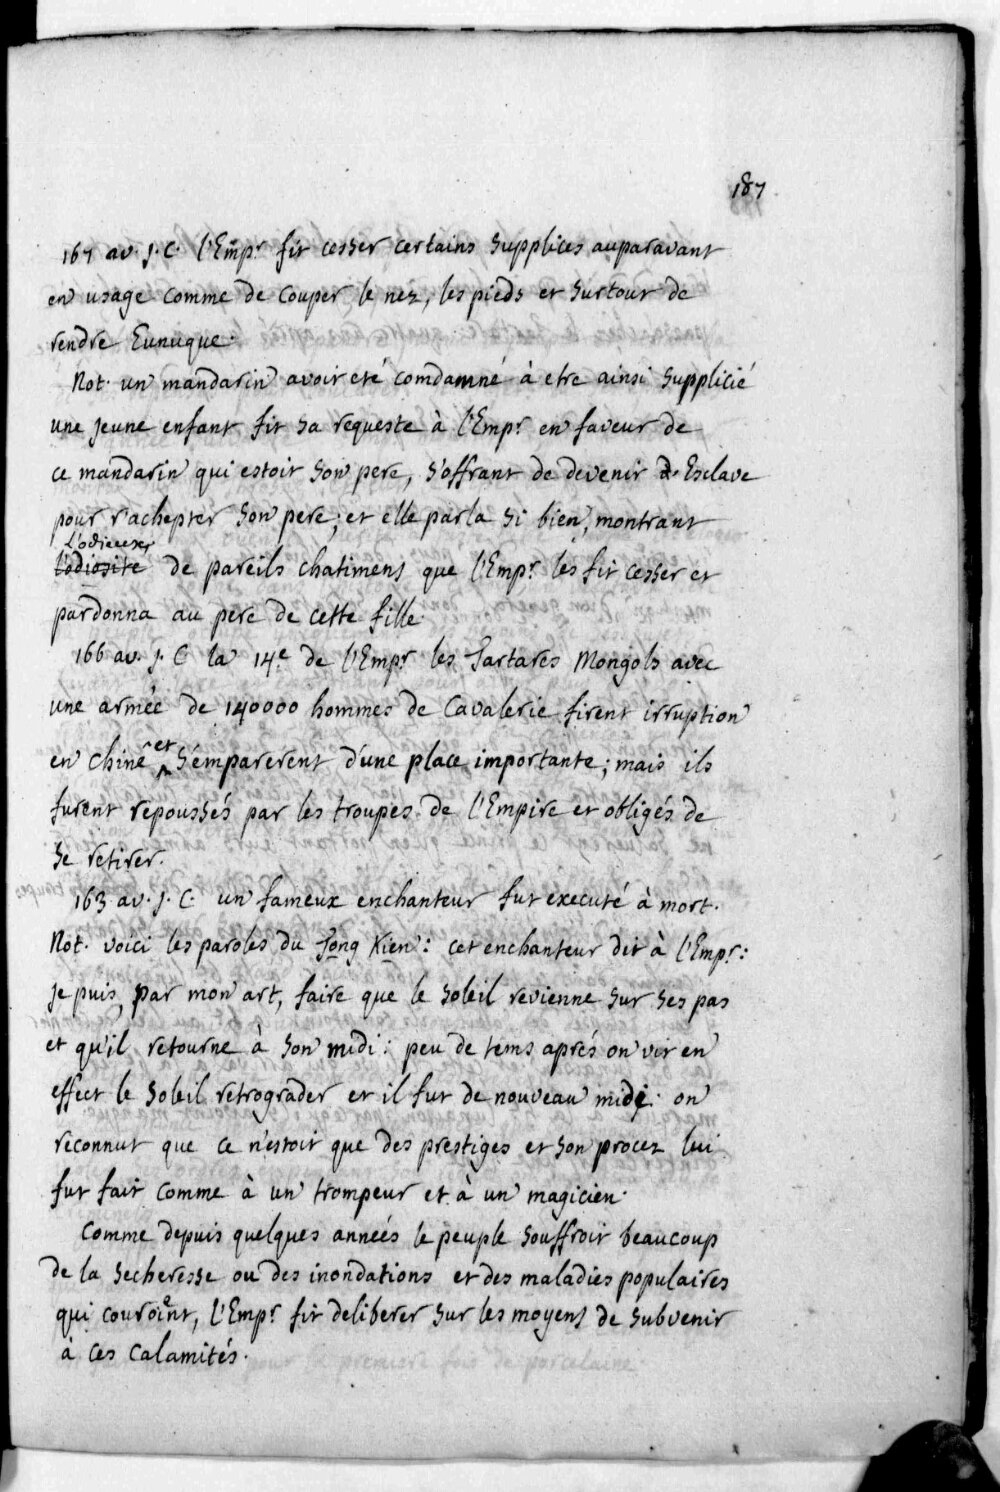 187
167 av. J. C. l'Emp.r fit cesser certains supplices auparavant
en usage comme de couper le nez, les pieds et surtout de
rendre Eunuque.
Not. un mandarin avoit eté comdamné à etre ainsi supplicié
une jeune enfant fit sa requeste à l'Emp.r en faveur de
ce mandarin qui estoit son pere, s'offrant de devenir Esclave
pour r'achepter son pere; et elle parla si bien, montrant
l'odieux
l'odiosite de pareils chatimens que l'Emp.r les fit cesser et
pardonna au pere de cette fille.
166 av. J. C la 14e de l'Emp.r les Tartares Mongols avec
une armée de 140000 hommes de Cavalerie firent irruption
en chine et s'emparerent d'une place importante; mais ils
furent repoussés par les troupes de l'Empire et obligés de
se retirer.
163 av. J. C. un fameux enchanteur fut executé à mort.
Not. voici les paroles du Tong Kien: cet enchanteur dit à l'Emp.r:
je puis, par mon art, faire que le soleil revienne sur ses pas
et qu'il retourne à son midi: peu de tems aprés on vit en
effect le soleil retrograder et il fut de nouveau midi. on
reconnut que ce n'estoit que des prestiges et son procez lui
fut fait comme à un trompeur et à un magicien.
Comme depuis quelques années le peuple souffroit beaucoup
de la secheresse ou des inondations et des maladies populaires
qui couroient, l'Emp.r fit deliberer sur les moyens de subvenir
à ces calamités.